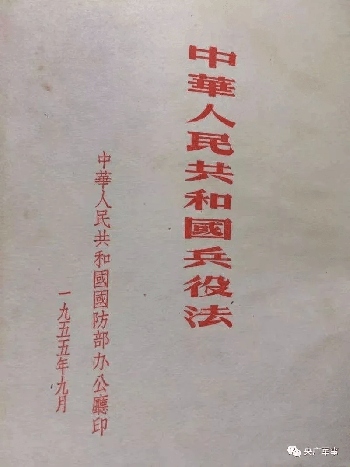 中華人民共和國兵役法
中華人民共和國國防部办公廳印
一九五五年九月
央广军事